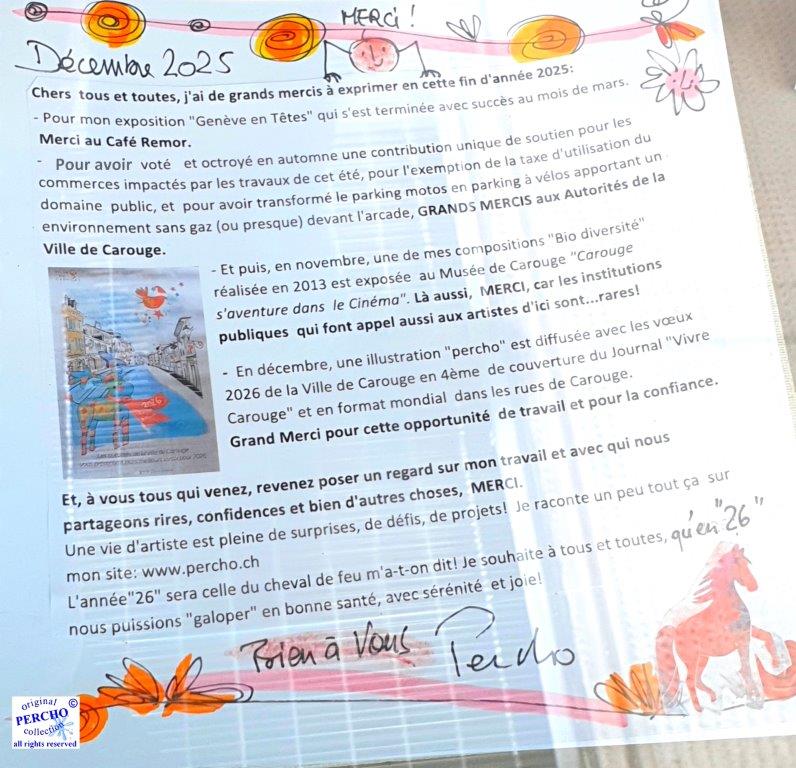 MERCi !
Décembre 2025
Chers tous et toutes, j'ai de grands mercis à exprimer en cette fin d'année 2025:
- Pour mon exposition "Genève en Têtes" qui s'est terminée avec succès au mois de mars.
Merci au Café Remor.
- Pour avoir voté et octroyé en automne une contribution unique de soutien pour les
commerces impactés par les travaux de cet été, pour l'exemption de la taxe d'utilisation du
domaine public, et pour avoir transformé le parking motos en parking à vélos apportant un
environnement sans gaz (ou presque) devant l'arcade, GRANDS MERCIS aux Autorités de la
Ville de Carouge.
- Et puis, en novembre, une de mes compositions "Bio diversité"
réalisée en 2013 est exposée au Musée de Carouge "Carouge
s'aventure dans le Cinéma". Là aussi, MERCI, car les institutions
publiques qui font appel aussi aux artistes d'ici sont...rares!
- En décembre, une illustration "percho" est diffusée avec les vœux
2026 de la Ville de Carouge en 4ème de couverture du Journal "Vivre
Carouge" et en format mondial dans les rues de Carouge.
Grand Merci pour cette opportunité de travail et pour la confiance.
2026
Et, à vous tous qui venez, revenez poser un regard sur mon travail et avec qui nous
partageons rires, confidences et bien d'autres choses, MERCI.
Une vie d'artiste est pleine de surprises, de défis, de projets! Je raconte un peu tout ça sur
mon site: www.percho.ch
L'année"26" sera celle du cheval de feu m'a-t-on dit! Je souhaite à tous et toutes, qu'en "26"
nous puissions "galoper" en bonne santé, avec sérénité et joie!
Bien à Vous Percho
original ©
PERCHO
collection
all rights reserved